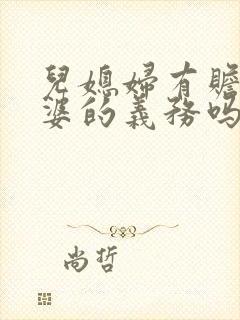 兒媳婦有贍
婆的義務嗎
尚哲